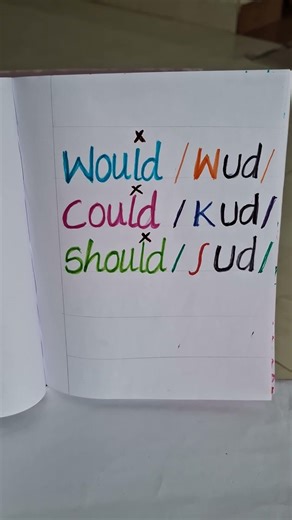 x
Would /Wud/
x
Could /Kud/
x
Should /ʃud/